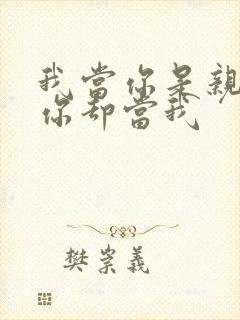 我當你是親
你却當我
樊崇義